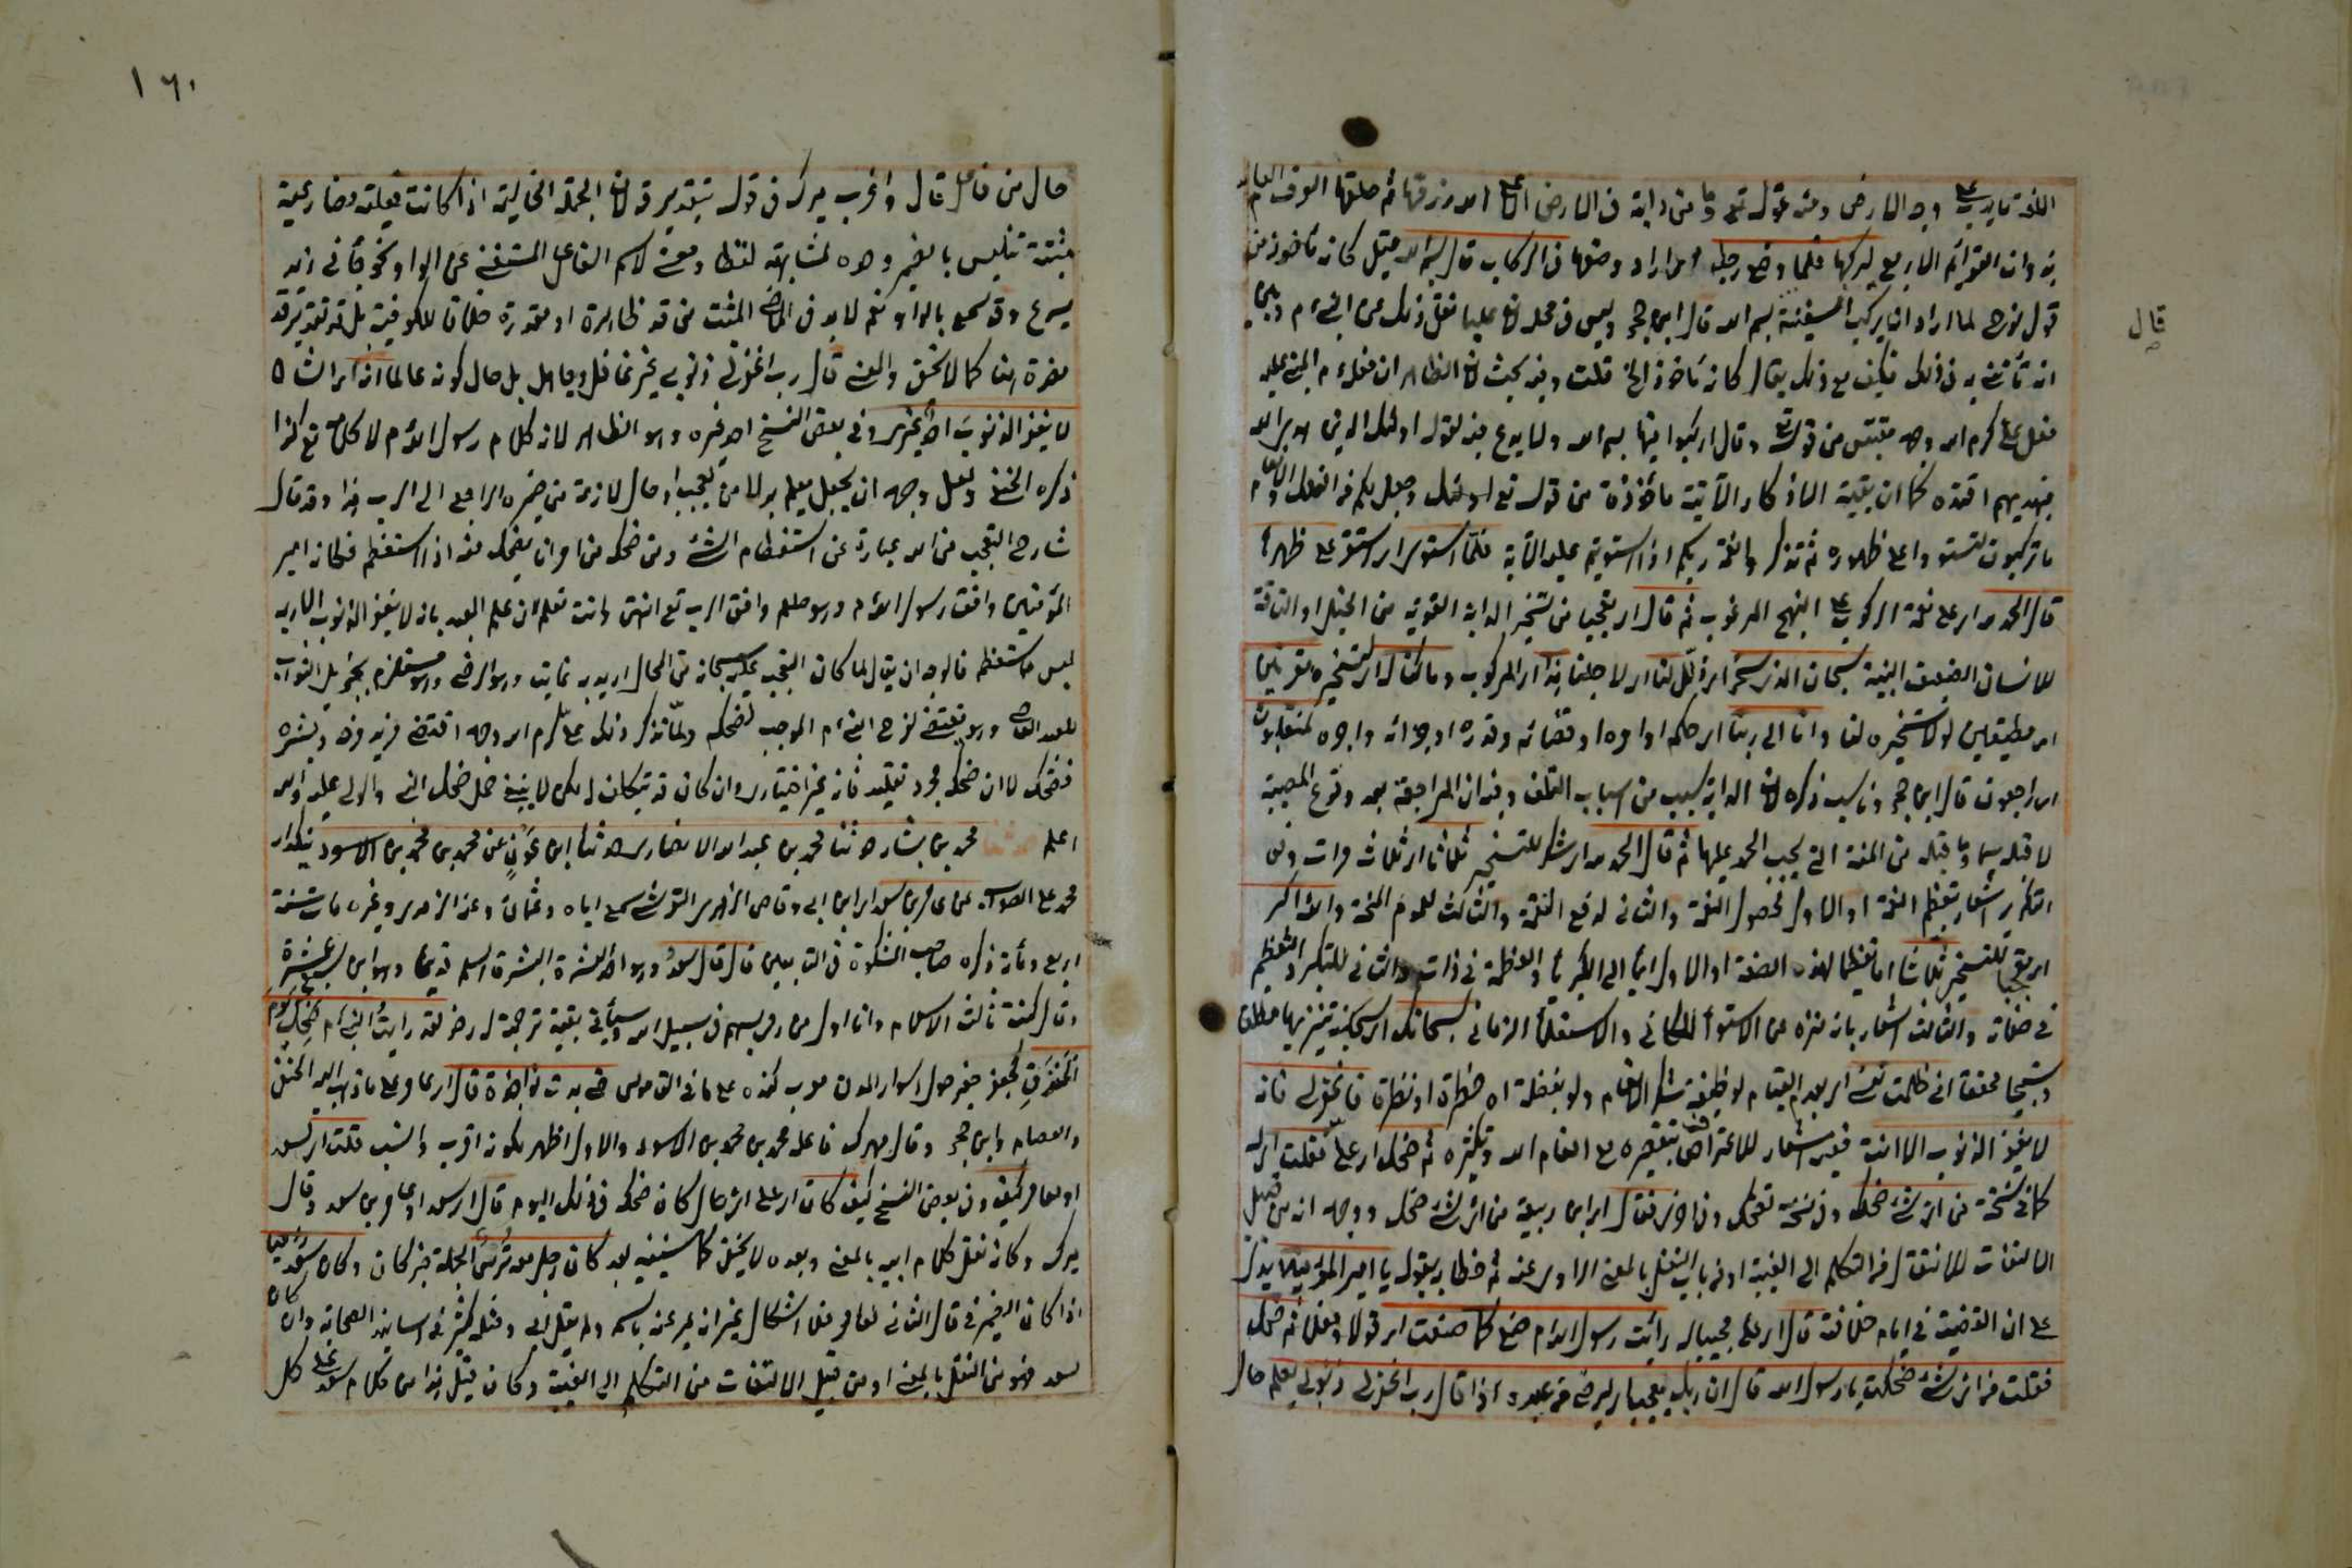 اللغة ما يدب على وجه الارض ومنه قوله تع وما من دابة في الارض الا على الله رزقها ثم خلقها العرف العام
بذوات القوائم الاربع ليركبها فلما وضع رجله اي اراد وضعها في الركاب قال بسم الله قيل كانه مأخوذ من
قول نوح لما اراد ان يركب السفينة بسم الله قال ابن حجر وليس في محله لان عليا نقل ذلك عن النبي م وبين
انه تأسى به في ذلك فكيف مع ذلك يقال كانه مأخوذ الخ قلت وفيه بحث لان الظاهر ان فعله م المبني عليه
فعل علي كرم الله وجهه مقتبس من قوله تع وقال اركبوا فيها بسم الله ولا بدع فيه لقوله اولئك الذين هدى الله
فبهديهم اقتده كما ان بقية الاذكار الآتية مأخوذة من قوله تع وجعل لكم من الفلك والانعام
ما تركبون لتستووا على ظهوره ثم تذكروا نعمة ربكم اذا استويتم عليه الآية فلما استوى اي استقر على ظهرها
قال الحمد لله اي على نعمة الركوب على النهج المرغوب ثم قال اي تعجبا من تسخير الدابة القوية من الخيل او الناقة
للانسان الضعيف البنية سبحان الذي سخر اي ذلل لنا اي لاجلنا هذا اي المركوب وما كنا له اي لتسخيره مقرنين
اي مطيقين لولا تسخيره لنا وانا الى ربنا اي حكمه او امره او قضائه وقدره او جزائه واجره لمنقلبون
اي راجعون قال ابن حجر وناسب ذكره لان الدابة سبب من اسباب التلف وفيه ان المراجعة بعد وقوع المصيبة
لا قبله سيما وما قبله من المنة التي يجب الحمد عليها ثم قال الحمد لله اي شكر للتسخير ثلاثا اي ثلاث مرات وفي
التكرير اشعار بتعظيم النعمة او الاول لحصول النعمة والثاني لدفع النقمة والثالث لعموم المنحة والله اكبر
اي تعجبا للتسخير ثلاثا اما تعظيما لهذه الصنعة او الاول ايماء الى الكبرياء والعظمة في ذاته والثاني للتكبر والتعظيم
في صفاته والثالث اشعار بانه منزه عن الاستواء المكاني والاستعلاء الزماني سبحانك اي اسبحك تنزيها مطلقا
وتسبيحا محققا اني ظلمت نفسي اي بعدم القيام لوظيفة شكر الانعام ولو بغفلة او خطرة او نظرة فاغفر لي فانه
لا يغفر الذنوب الا انت ففيه اشعار للاعتراف بتقصيره مع انعام الله وتكثيره ثم ضحك اي علي فقلت اي له
كما في نسخة من اي شئ ضحكت وفي نسخة تضحك وفي اخرى فقال اي ابن ربيعة من اي شئ ضحك ووجهه انه من قبيل
الالتفات للانتقال من التكلم الى الغيبة او من باب النقل بالمعنى الراوي عنه ثم خطابه بقوله يا امير المؤمنين يدل
على ان القضية في ايام خلافته قال اي علي مجيبا له رأيت رسول الله م صنع كما صنعت اي قولا وفعلا ثم ضحك
فقلت من اي شئ ضحكت يا رسول الله قال ان ربك ليعجب اي ليرضى من عبده اذا قال رب اغفر لي ذنوبي يعلم حال
قال
١٦٠
حال من فاعل قال واغرب ميرك في قوله بتقدير قد لان الجملة الحالية اذا كانت فعلية مضارعية
مثبتة تتلبس بالضمير وحده لمشابهته لفظا ومعنى لاسم الفاعل المستغني عن الواو نحو جاءني زيد
يسرع وقد سمع بالواو نعم لا بد في الماضي المثبت من قد ظاهرة او مقدرة خلافا للكوفية بل قد تقدير قد
مضرة هنا كما لا يخفى والمعنى قال رب اغفر لي ذنوبي غير غافل وجاهل بل حال كونه عالما انه اي الشان
لا يغفر الذنوب احد غيري وفي بعض النسخ احد غيره وهو الظاهر لانه كلام رسول الله م لا كلامه تع كذا
ذكره الحنفي ولعل وجهه ان يجعل يعلم بدلا من يعجب او حال لازمة من ضميره الراجع الى الرب هذا وقد قال
شارح التعجب من الله عبارة عن استعظام الشئ ومن ضحك من امر ان يضحك منه اذا استعظم فكانه امير
المؤمنين وافق رسول الله م وهو صلعم وافق الرب تع انتهى وانت تعلم ان علم العبد بانه لا يغفر الذنوب الا ربه
ليس مما يستعظم فالوجه ان يقال لما كان التعجب عليه سبحانه من المحال اريد به غايته وهو الرضى وهو مستلزم بجزيل الثواب
للعبد العاصي وهو يقتضي لفرح النبي م الموجب لضحكه ولما تذكر ذلك علي كرم الله وجهه اقتضى مزيد فرحه وبشره
فضحك لا ان ضحكه مجرد تقليد فانه غير اختياري وان كان قد يتكلف له لكن لا ينبغي حمل ضحك النبي والولي عليه والله
اعلم حدثنا محمد بن بشار حدثنا محمد بن عبد الله الانصاري حدثنا ابن عون عن محمد بن محمد بن الاسود بتكرار
محمد على الصواب عن عامر بن سعد اي ابن ابي وقاص الزهري القرشي سمع اباه وعثمان وعنه الزهري وغيره مات سنة
اربع ومأة ذكره صاحب المشكوة في التابعين قال قال سعد وهو احد العشرة المبشرة اسلم قديما وهو ابن سبع عشرة
وقال كنت ثالث الاسلام وانا اول من رمى بسهم في سبيل الله وسيأتي بقية ترجمته رضي لقد رأيت النبي م ضحك يوم
الخندق كجعفر حفير حول اسوار المدن معرب كنده على ما في القاموس حتى بدت نواجذه قال اي عامر على ما ذهب اليه الحنفي
والعصام وابن حجر وقال ميرك فاعله محمد بن محمد بن الاسود والاول اظهر لكونه اقرب وانسب قلت اي لسعد
او لعامر كيف وفي بعض النسخ كيف كان اي على اي حال كان ضحكه في ذلك اليوم قال اي سعد او عامر بن سعد وقال
ميرك وكانه نقل كلام ابيه بالمعنى وبعده لا يخفى كما سيفيه بعد كان رجل معه ترس الجملة خبر كان وكان سعد راميا
اذا كان الضمير في قال الثاني لعامر فلا اشكال غير انه عبر عنه باسمه ولم يقل ابي ومثله كثير في اسانيد الصحابة وان كان
لسعد فهو من النقل بالمعنى او من قبيل الالتفات من التكلم الى الغيبة وكان قيل هذا من كلام سعد على كل